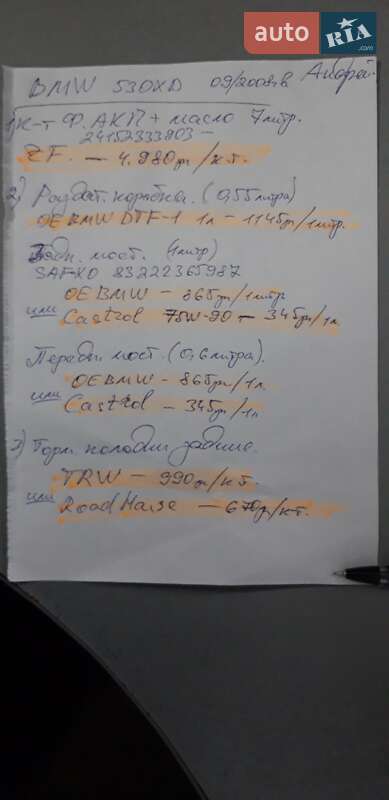 auto RIA.com
BMW 530XD 09/2008г.в Андрей
1) К-т Ф. АКП + масло 7 литр.
24152333803 -
ZF. — 4.980грн/к.т.
2) Раздат. коробка. (0,55 литра)
OE BMW DTF-1 1л - 1145грн/1литр.
Задн. мост. (1литр)
SAFXO 83222365987
OE BMW - 865грн/1литр
или Castrol 75W-90 - 345грн/1л
Передн мост. (0,6 литра).
OE BMW - 865грн/1л
или Castrol - 345грн/1л
3) Торм. колодки задние.
TRW — 990грн/к.т.
или Road House — 670грн/к.т.